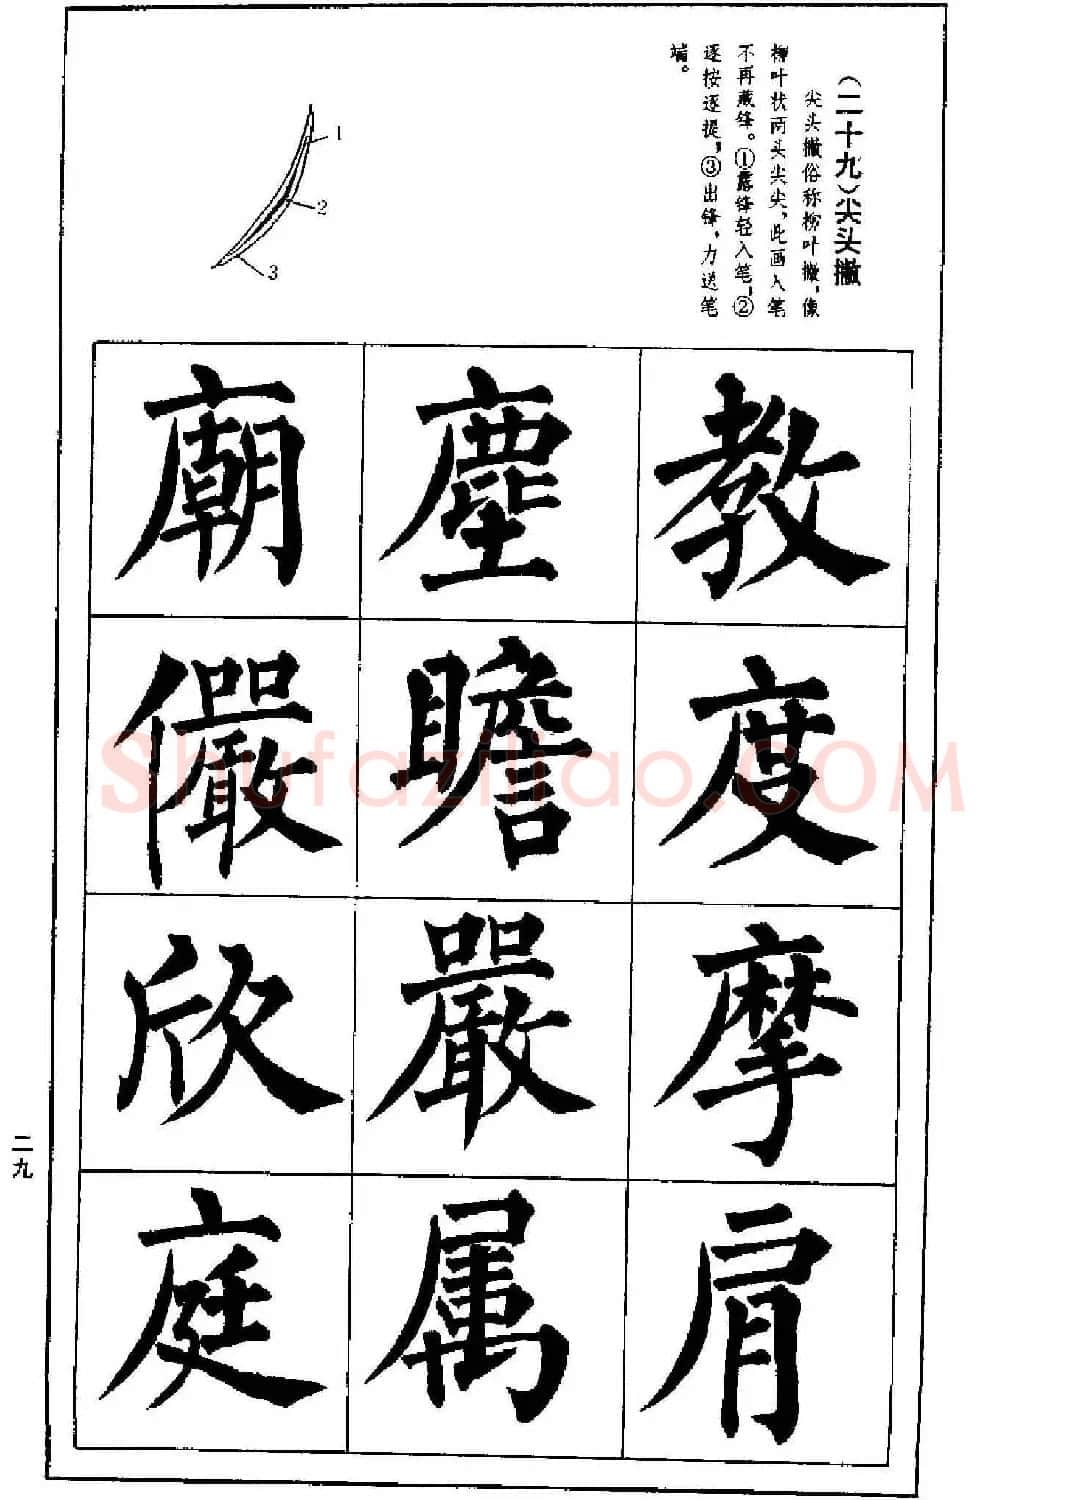 （二十九）尖头撇
尖头撇俗称柳叶撇，像
柳叶状两头尖尖，此画入笔
不再藏锋。①露锋轻入笔，②
逐按逐提，③出锋，力送笔
端。
1
2
3
教
度
摩
肩
塵
瞻
嚴
属
廟
儼
欣
庭
二九
Shufaziliao.COM